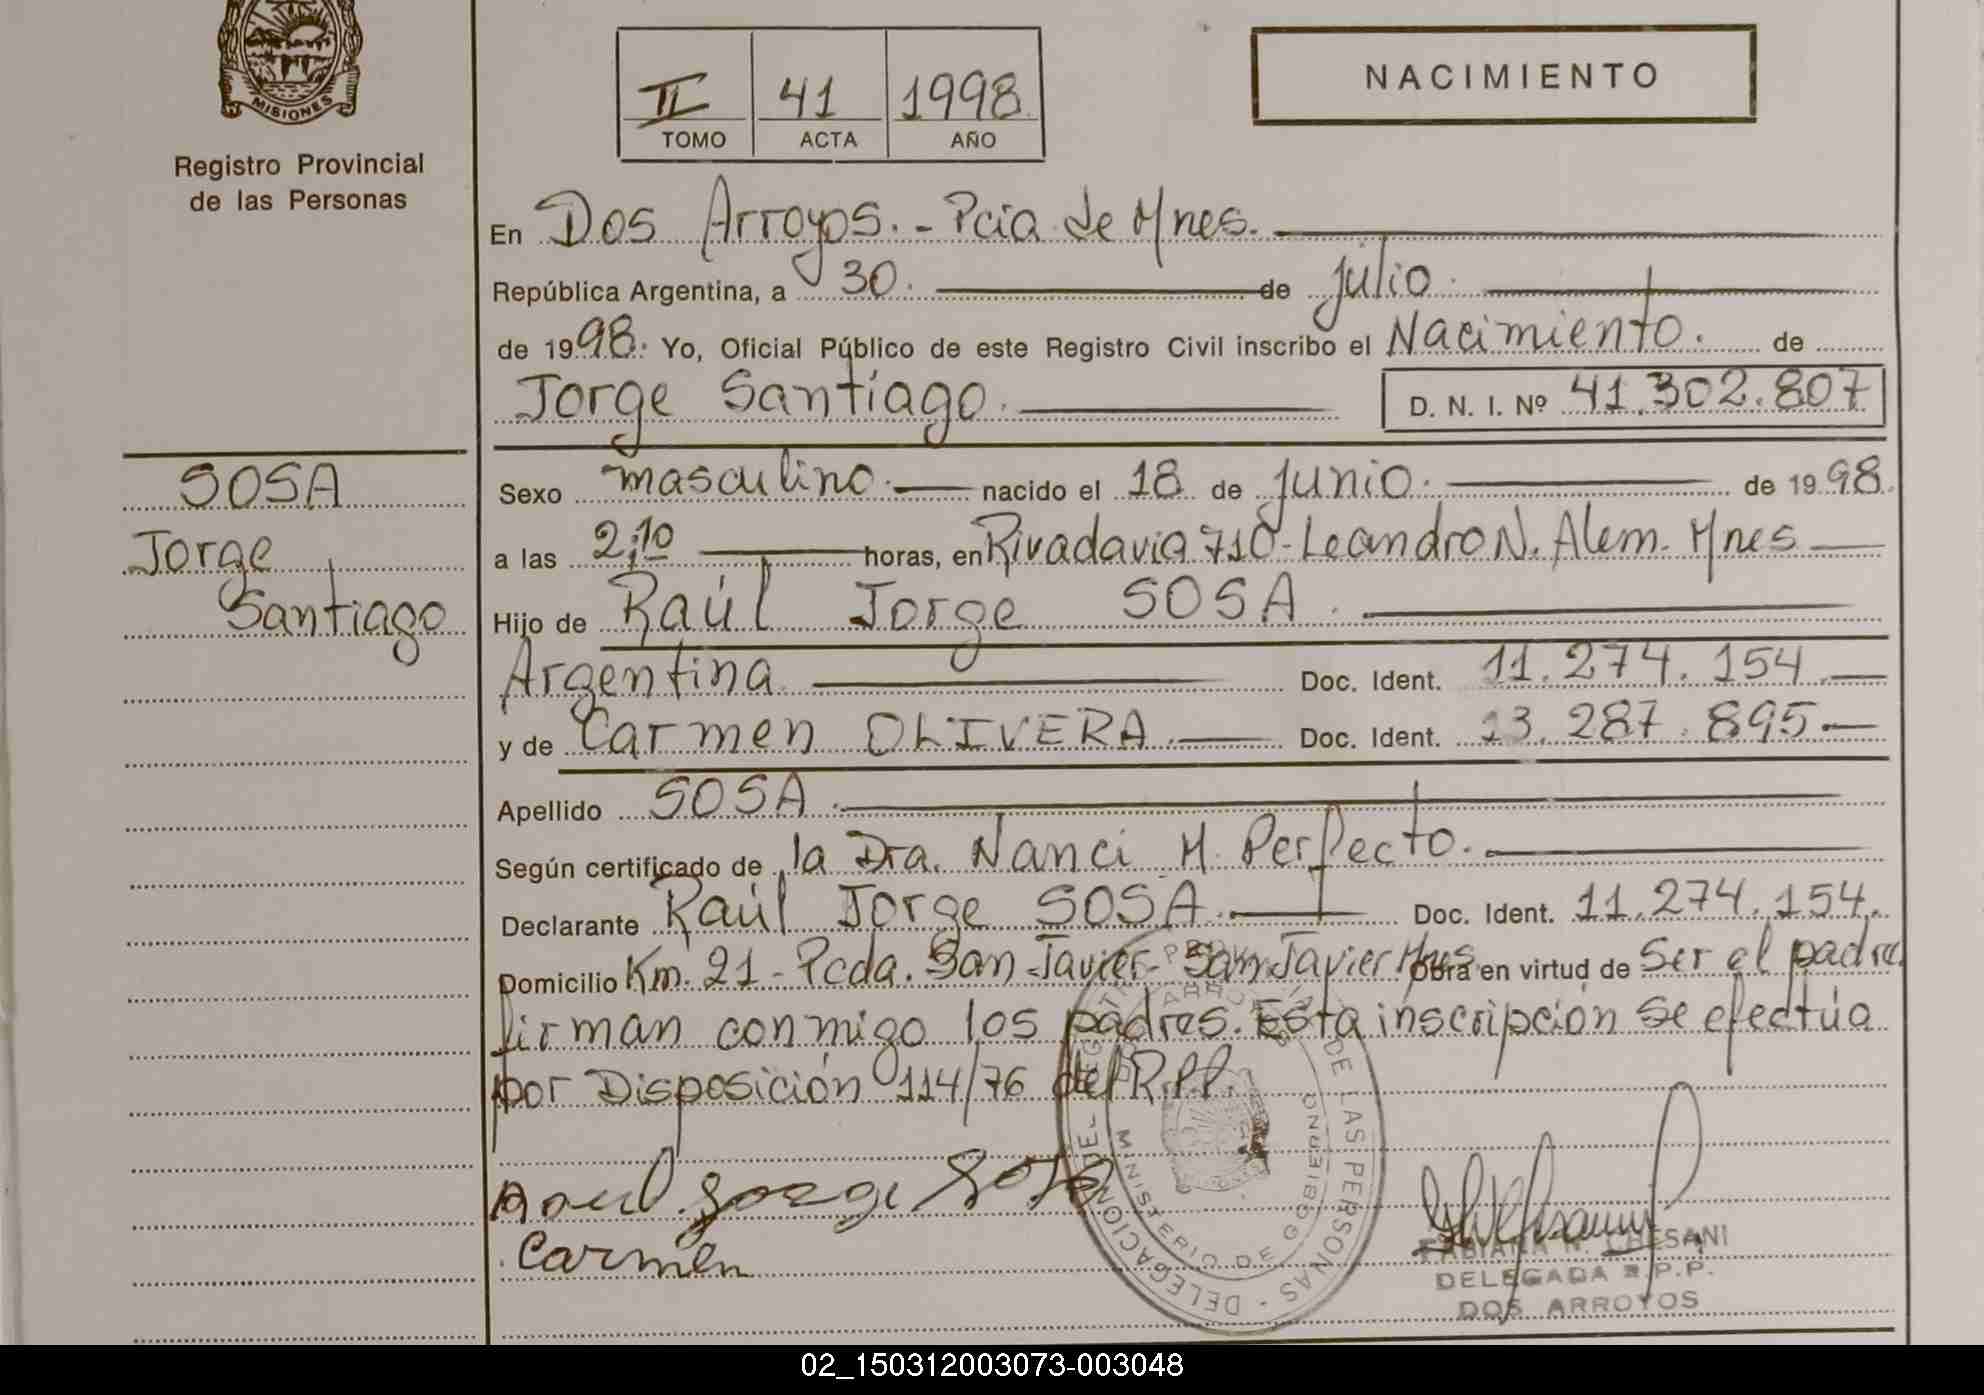 MISIONES
Registro Provincial
de las Personas
II 41 1998
TOMO ACTA AÑO
NACIMIENTO
En Dos Arroyos.- Pcia de Mnes.
República Argentina, a 30. de julio.
de 1998. Yo, Oficial Público de este Registro Civil inscribo el Nacimiento. de
Jorge Santiago. D. N. I. Nº 41.302.807
SOSA
Jorge
Santiago
Sexo masculino. nacido el 18 de junio. de 1998.
a las 2,10 horas, en Rivadavia 710-Leandro N. Alem. Mnes
Hijo de Raúl Jorge SOSA.
Argentina Doc. Ident. 11.274.154
y de Carmen OLIVERA Doc. Ident. 13.287.895
Apellido SOSA.
Según certificado de la Dra. Nanci M. Perfecto.
Declarante Raúl Jorge SOSA Doc. Ident. 11.274.154.
Domicilio Km. 21 - Pcda. San Javier- San Javier Mnes Obra en virtud de Ser el padre.
firman conmigo los padres. Esta inscripción se efectúa
por Disposición 114/76 del R.P.P.
Raul Jorge Sosa
Carmen
DE LAS PERSONAS - DELEGACION
MINISTERIO DE GOBIERNO
FABIANA N. CHESANI
DELEGADA R.P.P.
DOS ARROYOS
02_150312003073-003048